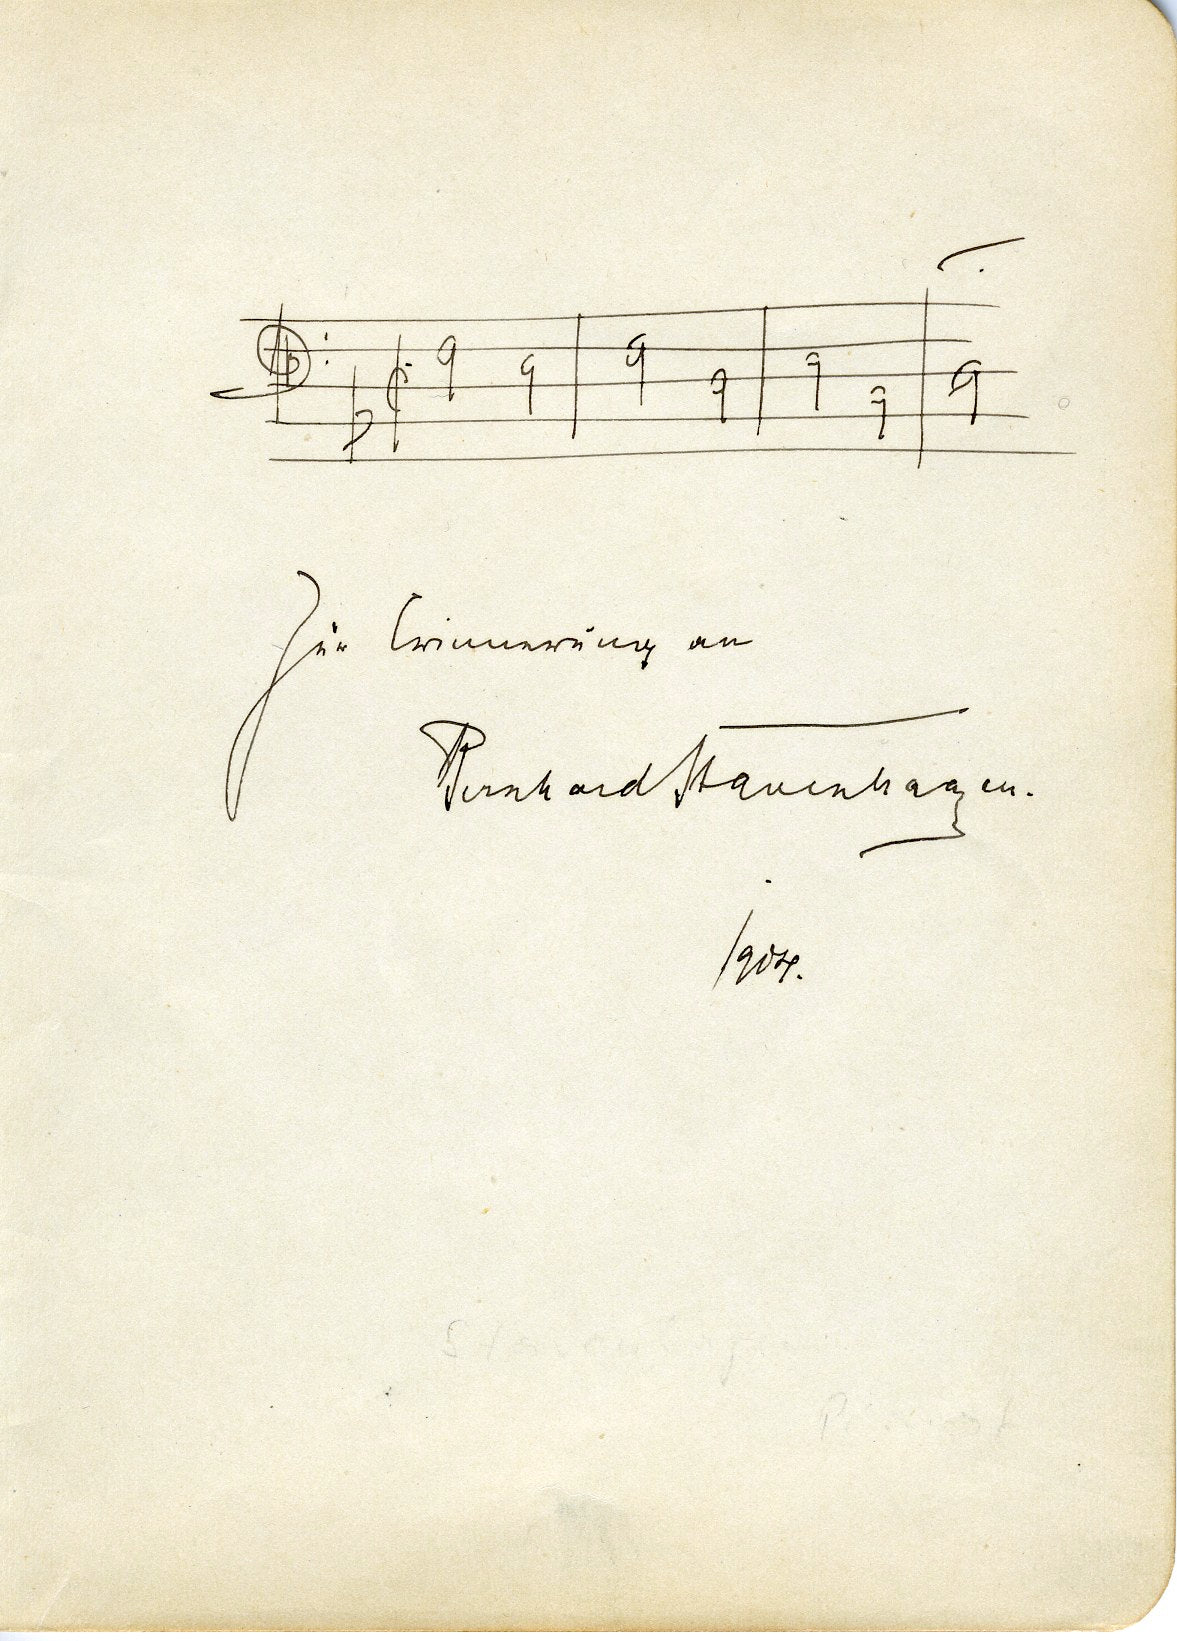 Zur Erinnerung an
Bernhard Stavenhagen.
1904.
Stavenhagen
Pianist